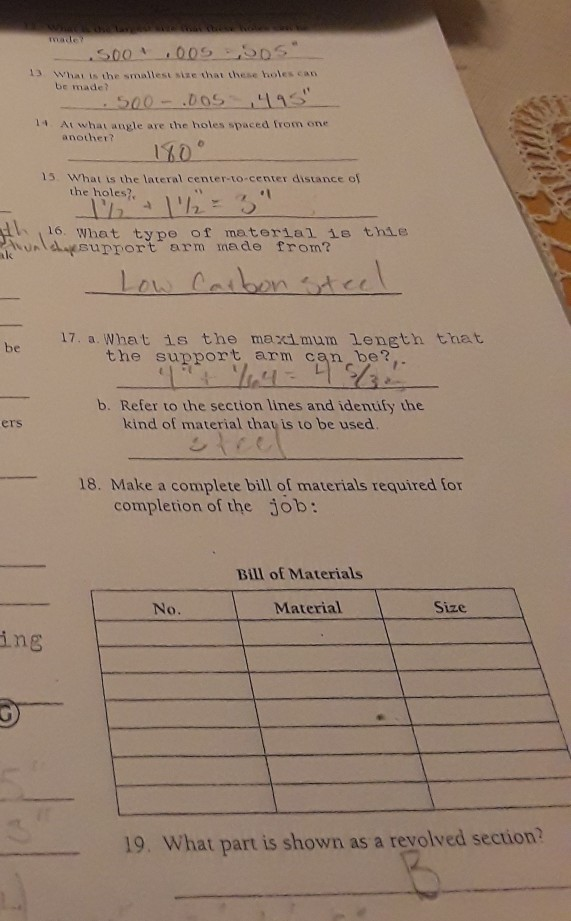 12. What is the largest size that these holes can be
made?
.500 + .005 = .505"
13. What is the smallest size that these holes can
be made?
.500 - .005 = .495"
14. At what angle are the holes spaced from one
another?
180°
15. What is the lateral center-to-center distance of
the holes?
1 1/2 + 1 1/2" = 3"
16. What type of material is this
support arm made from?
Low Carbon steel
17. a. What is the maximum length that
the support arm can be?
4" + 1/64 = 4 5/32
b. Refer to the section lines and identify the
kind of material that is to be used.
steel
18. Make a complete bill of materials required for
completion of the job:
Bill of Materials
No. Material Size
19. What part is shown as a revolved section?
B
be
ers
ing
G
5"
3"